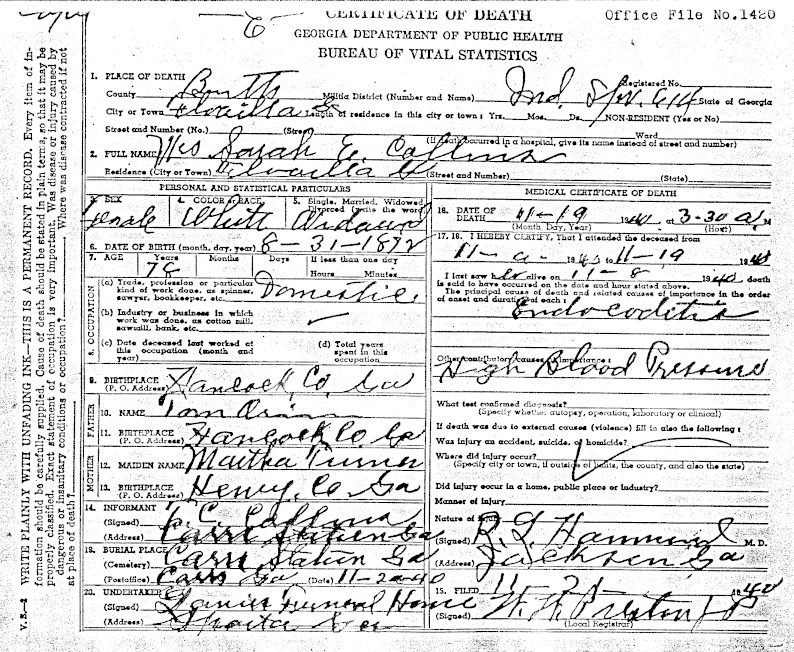 CERTIFICATE OF DEATH
Office File No.1420
GEORGIA DEPARTMENT OF PUBLIC HEALTH
BUREAU OF VITAL STATISTICS
WRITE PLAINLY WITH UNFADING INK—THIS IS A PERMANENT RECORD. Every item of in-
formation should be carefully supplied. Cause of death should be stated in plain terms, so that it may be
properly classified. Exact statement of occupation is very important. Was disease or injury caused by
dangerous or insanitary conditions or occupation?
Where was disease contracted if not
at place of death?
V. S.—2
1. PLACE OF DEATH
Registered No.
County Butts Militia District (Number and Name) Ind. Spr. 614 State of Georgia
City or Town Flovilla Ga Length of residence in this city or town: Yrs. Mos. Ds. NON-RESIDENT (Yes or No)
Street and Number (No.) (Street) Ward
(If death occurred in a hospital, give its name instead of street and number)
2. FULL NAME Mrs Sarah E. Collins
Residence (City or Town) Flovilla Ga (Street and Number) (State)
PERSONAL AND STATISTICAL PARTICULARS
3. SEX 4. COLOR or RACE 5. Single, Married, Widowed,
Divorced (write the word)
Female White Widow
6. DATE OF BIRTH (month, day, year) 8-31-1872
7. AGE Years Months Days If less than one day
78 Hours Minutes
8. OCCUPATION
(a) Trade, profession or particular
kind of work done, as spinner,
sawyer, bookkeeper, etc. Domestic
(b) Industry or business in which
work was done, as cotton mill,
sawmill, bank, etc. ✓
(c) Date deceased last worked at
this occupation (month and
year)
(d) Total years
spent in this
occupation
9. BIRTHPLACE
(P. O. Address) Hancock, Co, Ga
FATHER
10. NAME Tom
11. BIRTHPLACE
(P. O. Address) Hancock Co Ga
MOTHER
12. MAIDEN NAME Martha Turner
13. BIRTHPLACE
(P. O. Address) Henry, Co Ga
14. INFORMANT
(Signed) C. Collins
(Address) Carrs Station Ga
19. BURIAL PLACE
(Cemetery) Carrs Station Ga
(Postoffice) Carrs Ga (Date) 11-20-40
20. UNDERTAKER
(Signed) Lanier Funeral Home
(Address) Sparta Ga
MEDICAL CERTIFICATE OF DEATH
16. DATE OF
DEATH 11-19 1940 at 3-30 a M
(Month, Day, Year) (Hour)
17, 18. I HEREBY CERTIFY, That I attended the deceased from
11- 1940 to 11-19 1940
I last saw her alive on 11-8 1940 death
is said to have occurred on the date and hour stated above.
The principal cause of death and related causes of importance in the order
of onset and duration of each:
Endocoditis
Other contributory causes of importance:
High Blood Pressure
What test confirmed diagnosis?
(Specify whether autopsy, operation, laboratory or clinical)
If death was due to external causes (violence) fill in also the following:
Was injury an accident, suicide, or homicide?
Where did injury occur?
(Specify city or town, if outside of limits, the county, and also the state)
Did injury occur in a home, public place or industry?
Manner of injury
Nature of injury
(Signed) M. D.
(Address) Jackson Ga
15. FILED 11 1940
(Signed) Preston
(Local Registrar)